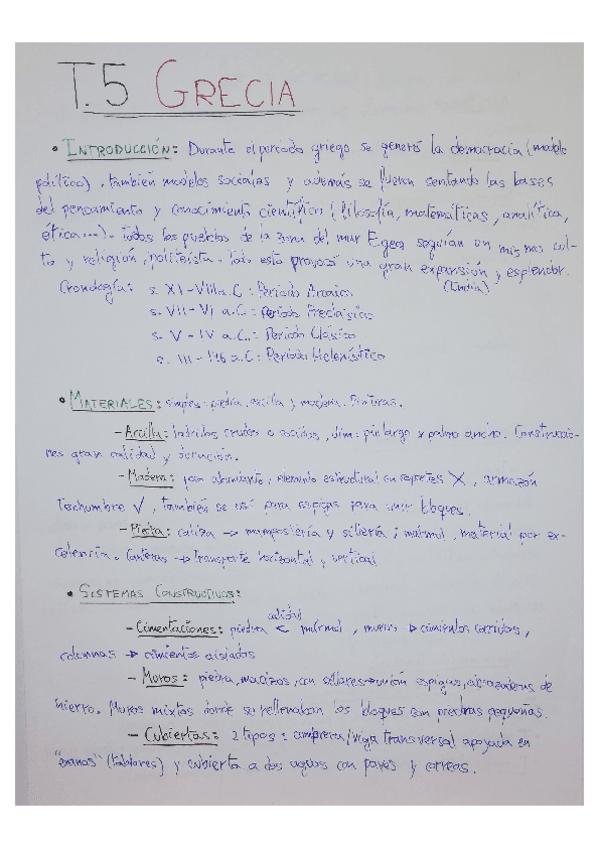 T.5 GRECIA
• INTRODUCCIÓN: Durante el periodo griego se generó la democracia (modelo
político). También modelos sociales y además se fueron sentando las bases
del pensamiento y conocimiento científico (filosofía, matemáticas, analítica,
ética...). Todos los pueblos de la zona del mar Egeo seguían un mismo cul-
to y religión, politeísta. Todo esto provocó una gran expansión y esplendor.
Cronología: s. XI-VIII a.C: Periodo Arcaico
s. VII-VI a.C: Periodo Preclásico
s. V-IV a.C.: Periodo Clásico
s. III-146 a.C: Periodo Helenístico
• MATERIALES: simples: piedra, arcilla y madera. Pinturas.
- Arcilla: ladrillos crudos o cocidos, dim: pie largo x palmo ancho. Construccio-
nes gran calidad y duración.
- Madera: poco abundante, elemento estructural en soportes X, armazón
techumbre ✓, también se usó para espigas para unir bloques.
- Piedra: caliza → mampostería y sillería; mármol, material por ex-
celencia. Canteras → transporte horizontal y vertical
• SISTEMAS CONSTRUCTIVOS:
calidad
- Cimentaciones: piedra < mármol, muros → cimientos corridos,
columnas → cimientos aislados
- Muros: piedra, macizos, con sillares → unión espigas, abrazaderas de
hierro. Muros mixtos donde se rellenaban los bloques con piedras pequeñas.
- Cubiertas: 2 tipos: viga transversal apoyada en
(tablones) y cubierta a dos aguas con pares y correas.